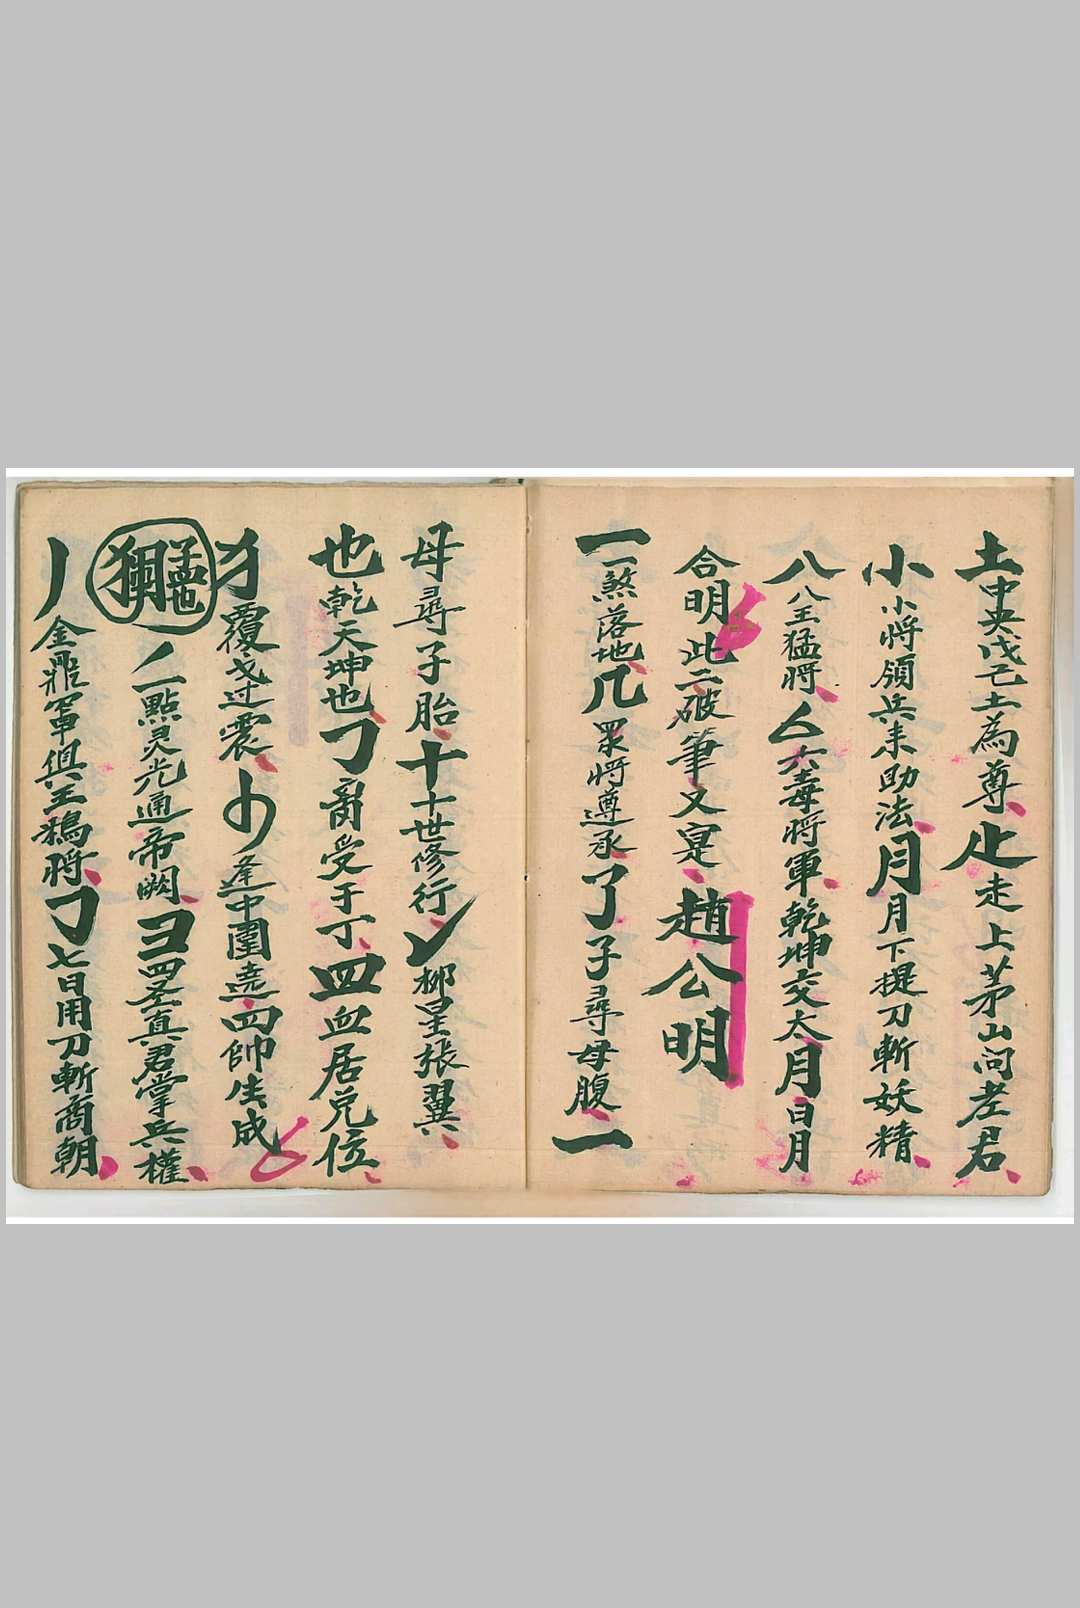 土中央戊己土為尊走走上茅山问老君
小小将領兵来助法月月下提刀斬妖精
八八王猛将厶六毒将軍乾坤交太月日月
合明此二破筆又寔趙公明
一一煞落地几眾将遵承了子尋母腹一
母尋子胎十十世修行柳星張翼
也乾天坤也㇆受于丁皿血居兑位
犭覆过震少逢中圍遶四帅生成
孟也丿一點灵光通帝闕彐四圣真君掌兵權
丿金飛軍與王鵶将㇆七日用刀斬商朝